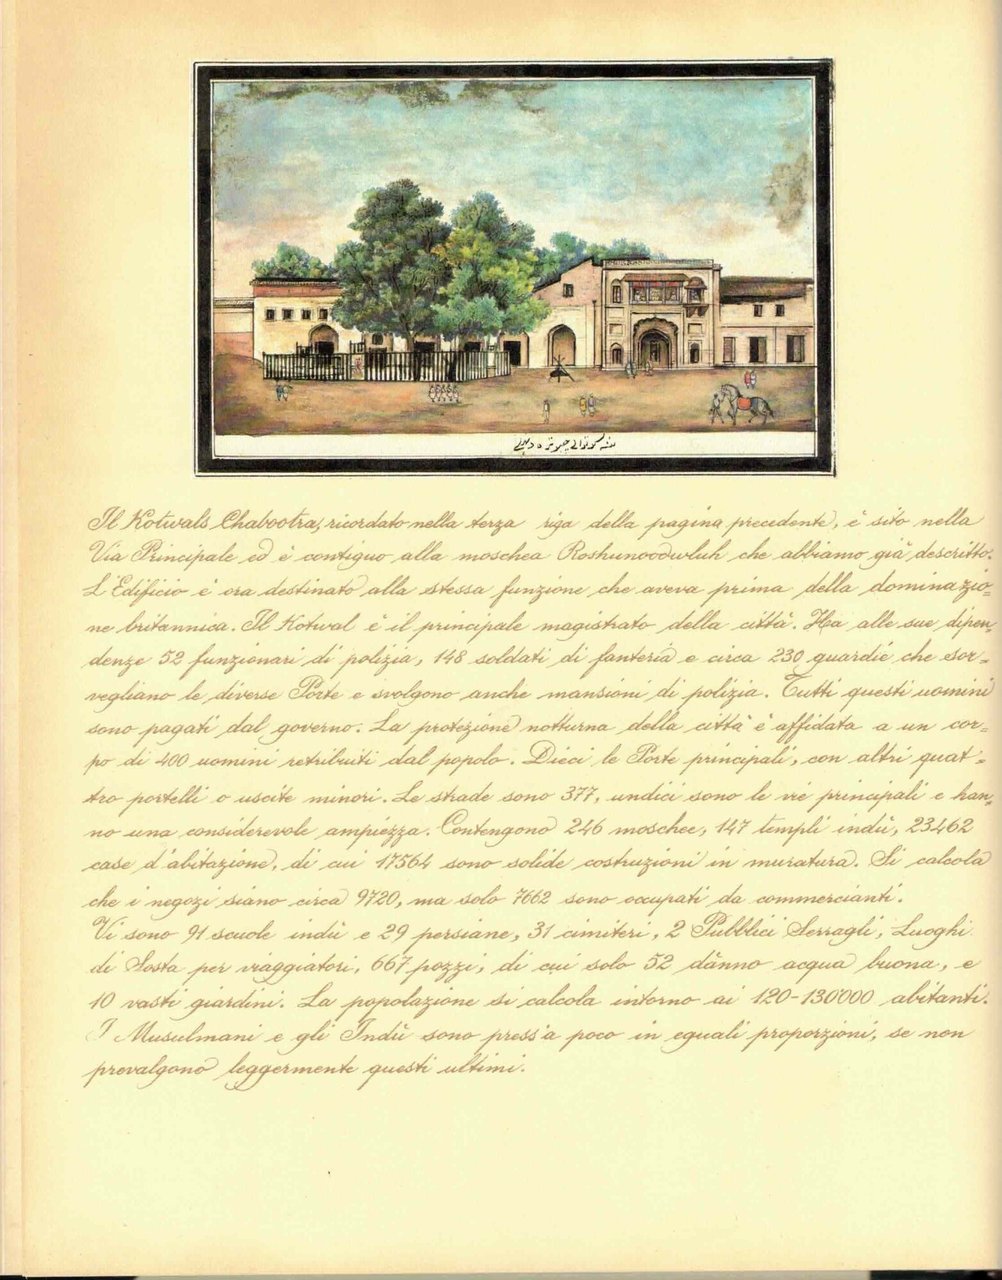 نقشه کوتوالی چبوتره دهلی
Il Kotwals Chabootra, ricordato nella terza riga della pagina precedente, è sito nella
Via Principale ed è contiguo alla moschea Roshunoodwluh che abbiamo già descritto.
L'Edificio è ora destinato alla stessa funzione che aveva prima della dominazio-
ne britannica. Il Kotwal è il principale magistrato della città. Ha alle sue dipen-
denze 52 funzionari di polizia, 148 soldati di fanteria e circa 230 guardie che sor-
vegliano le diverse Porte e svolgono anche mansioni di polizia. Tutti questi uomini
sono pagati dal governo. La protezione notturna della città è affidata a un cor-
po di 400 uomini retribuiti dal popolo. Dieci le Porte principali, con altri quat-
tro portelli o uscite minori. Le strade sono 377, undici sono le vie principali e han-
no una considerevole ampiezza. Contengono 246 moschee, 147 templi indù, 23462
case d'abitazione, di cui 17564 sono solide costruzioni in muratura. Si calcola
che i negozi siano circa 9720, ma solo 7662 sono occupati da commercianti.
Vi sono 91 scuole indù e 29 persiane, 31 cimiteri, 2 Pubblici Serragli, Luoghi
di Sosta per viaggiatori, 667 pozzi, di cui solo 52 dànno acqua buona, e
10 vasti giardini. La popolazione si calcola intorno ai 120-130'000 abitanti.
I Musulmani e gli Indù sono press'a poco in eguali proporzioni, se non
prevalgono leggermente questi ultimi.